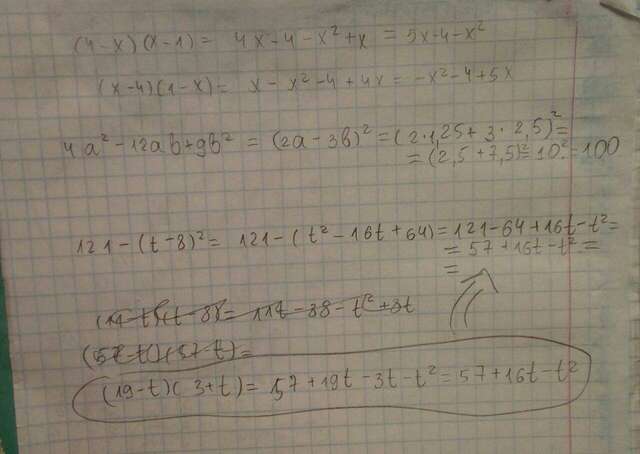 (4-x)(x-1) = 4x-4-x²+x = 5x-4-x²
(x-4)(1-x) = x-x²-4+4x = -x²-4+5x
4a²-12ab+9b² = (2a-3b)² = (2·1,25+3·2,5)² =
= (2,5+7,5)² = 10² = 100
121-(t-8)² = 121-(t²-16t+64) = 121-64+16t-t² =
= 57+16t-t² =
=
(11-t)(t-8) = 11t-88-t²+8t
(57-t)(57-t) =
(19-t)(3+t) = 57+19t-3t-t² = 57+16t-t²